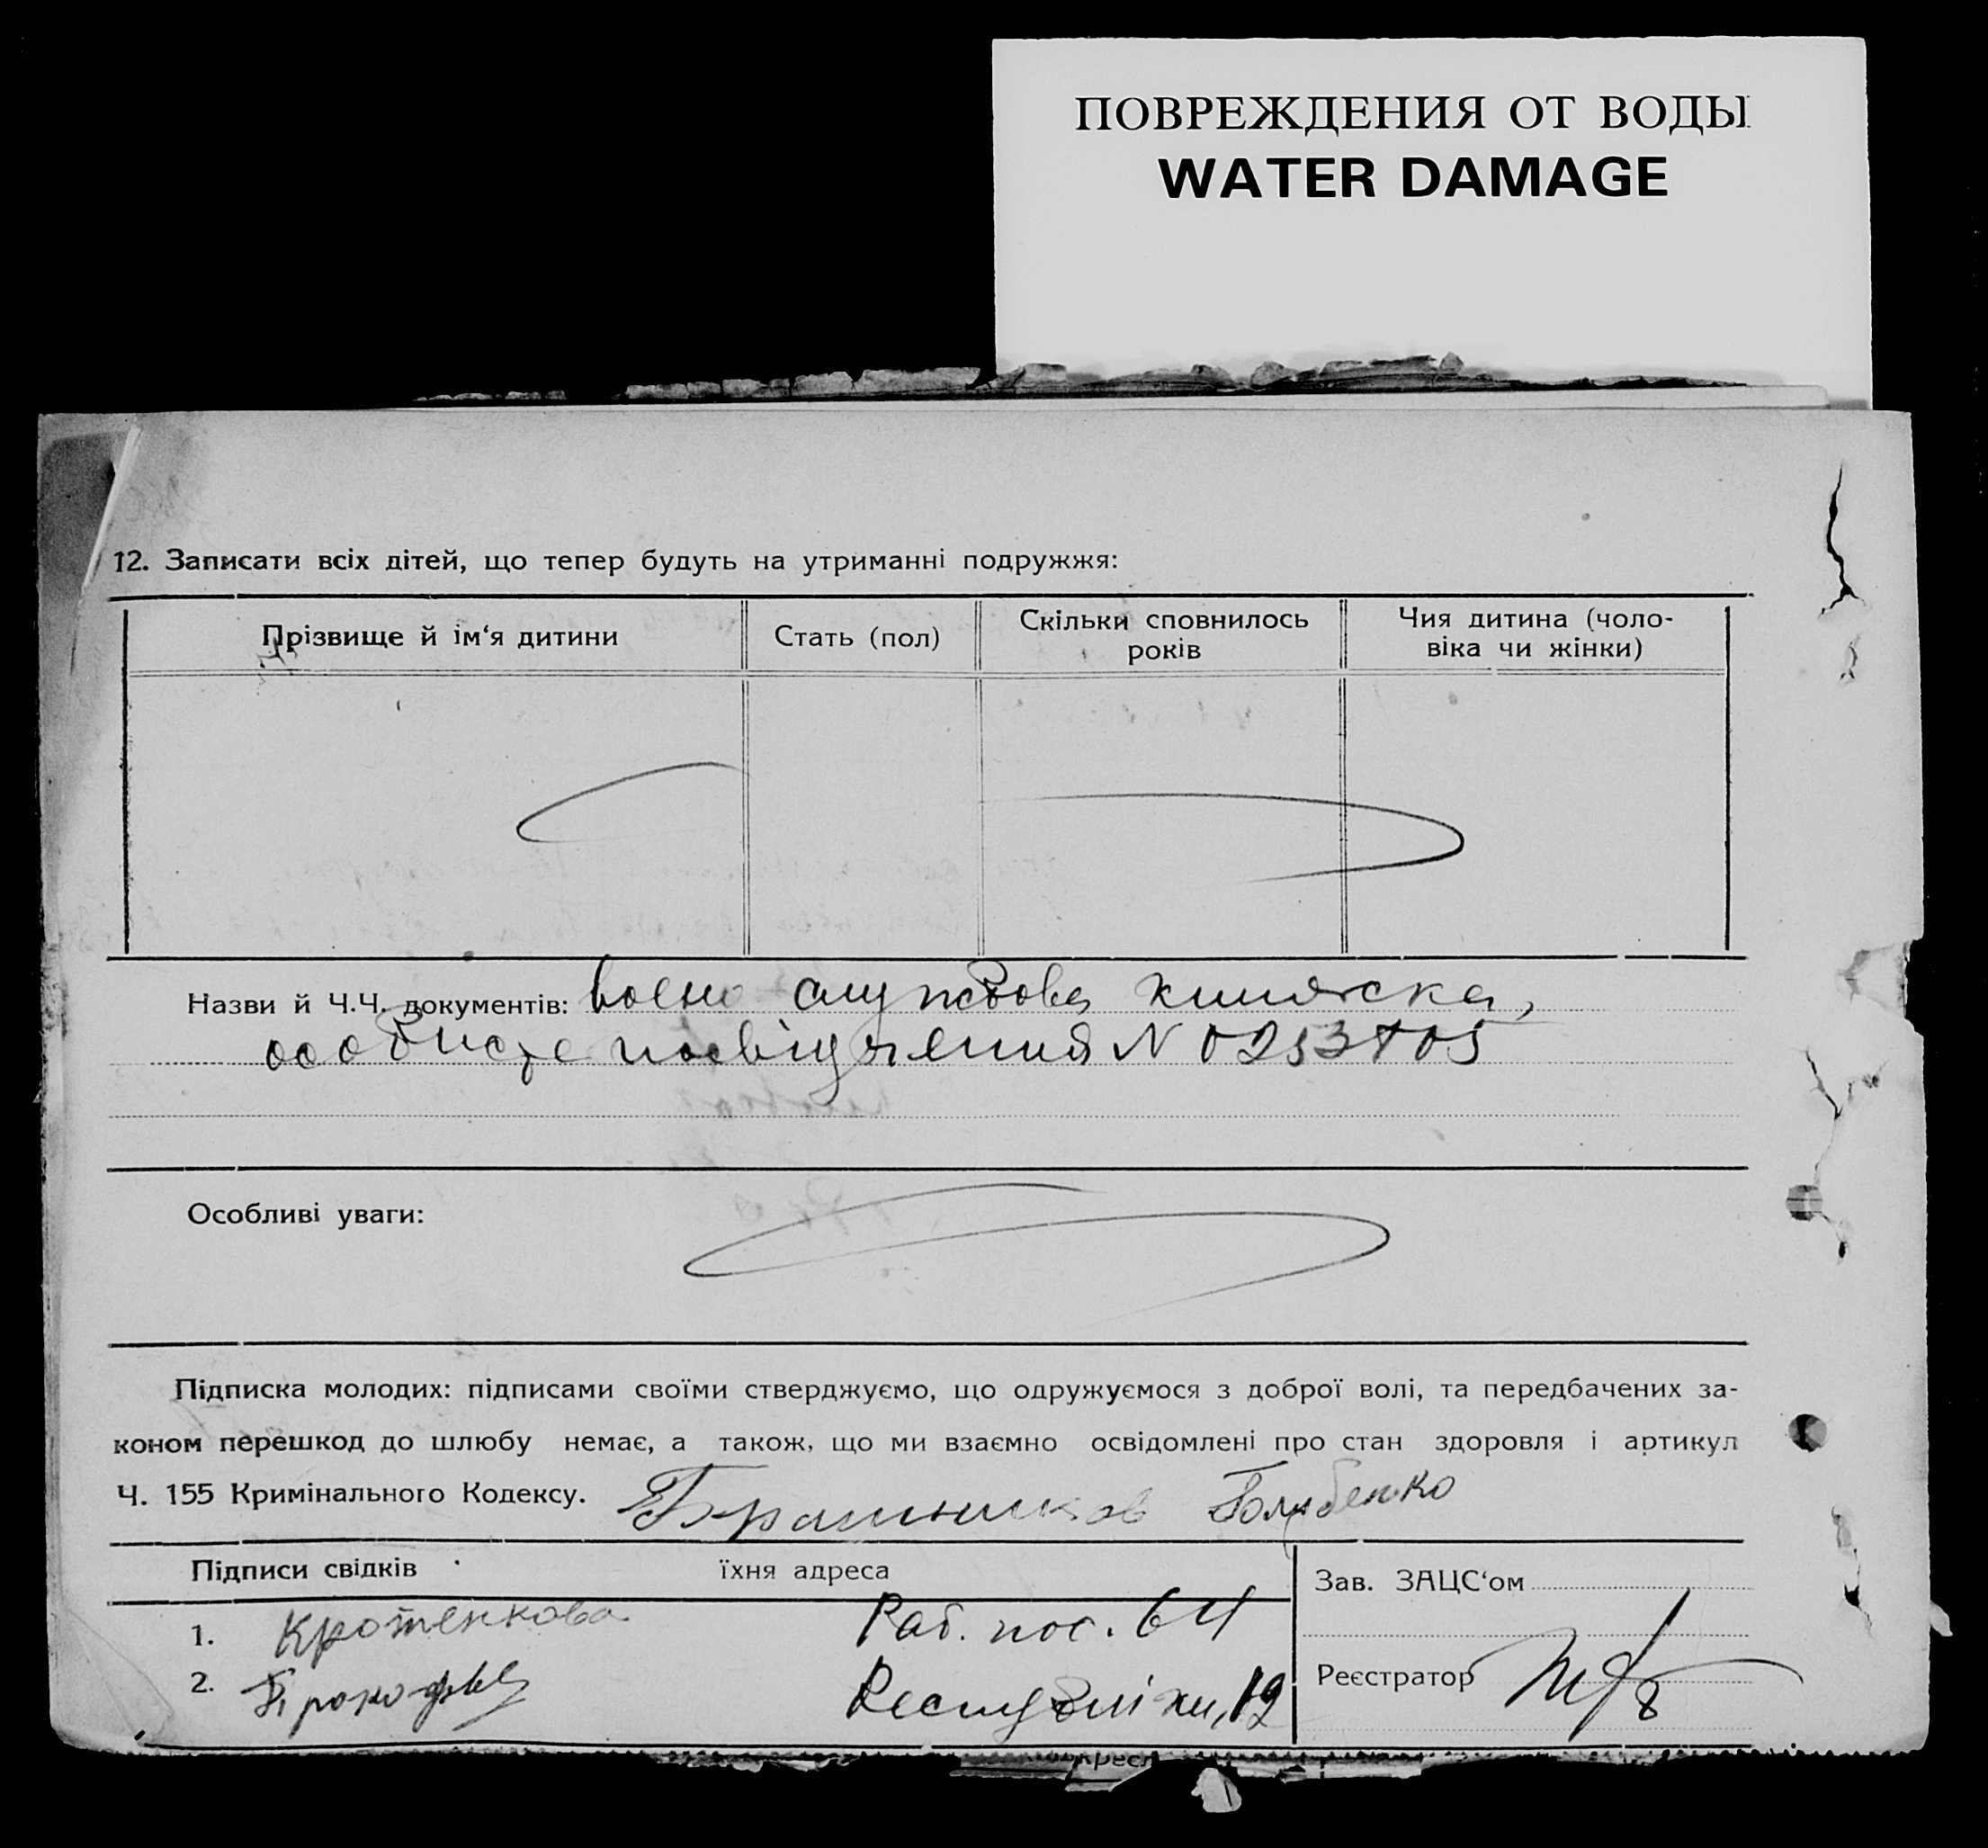 ПОВРЕЖДЕНИЯ ОТ ВОДЫ
WATER DAMAGE
12. Записати всіх дітей, що тепер будуть на утриманні подружжя:
Прізвище й ім‘я дитини
Стать (пол)
Скільки сповнилось
років
Чия дитина (чоло-
віка чи жінки)
Назви й Ч.Ч. документів: воєно службова книжска,
особисте посвідчення N 0253705
Особливі уваги:
Підписка молодих: підписами своїми стверджуємо, що одружуємося з доброї волі, та передбачених за-
коном перешкод до шлюбу немає, а також, що ми взаємно освідомлені про стан здоровля і артикул
Ч. 155 Кримінального Кодексу. Голубенко
Підписи свідків їхня адреса
Зав. ЗАЦС‘ом
1. Кротенкова Раб. пос. 64
2. Республіки, 19
Реєстратор